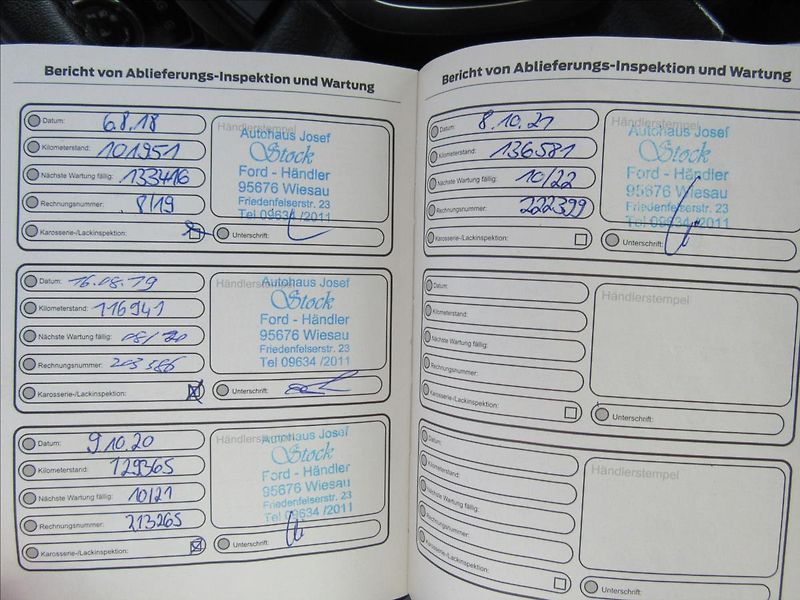 Bericht von Ablieferungs-Inspektion und Wartung
Datum: 6.8.18
Kilometerstand: 101951
Nächste Wartung fällig: 133416
Rechnungsnummer: 8/19
Karosserie-/Lackinspektion:
Händlerstempel
Autohaus Josef
Stock
Ford - Händler
95676 Wiesau
Friedenfelserstr. 23
Tel 09634 /2011
Unterschrift:
Datum: 16.08.19
Kilometerstand: 116941
Nächste Wartung fällig: 08/20
Rechnungsnummer: 203586
Karosserie-/Lackinspektion:
Händlerstempel
Autohaus Josef
Stock
Ford - Händler
95676 Wiesau
Friedenfelserstr. 23
Tel 09634 /2011
Unterschrift:
Datum: 9.10.20
Kilometerstand: 129365
Nächste Wartung fällig: 10/21
Rechnungsnummer: 213265
Karosserie-/Lackinspektion:
Händlerstempel
Autohaus Josef
Stock
Ford - Händler
95676 Wiesau
Friedenfelserstr. 23
Tel 09634 /2011
Unterschrift:
Bericht von Ablieferungs-Inspektion und Wartung
Datum: 8.10.21
Kilometerstand: 136581
Nächste Wartung fällig: 10/22
Rechnungsnummer: 222399
Karosserie-/Lackinspektion:
Händlerstempel
Autohaus Josef
Stock
Ford - Händler
95676 Wiesau
Friedenfelserstr. 23
Tel 09634 /2011
Unterschrift:
Datum:
Kilometerstand:
Nächste Wartung fällig:
Rechnungsnummer:
Karosserie-/Lackinspektion:
Händlerstempel
Unterschrift:
Datum:
Kilometerstand:
Nächste Wartung fällig:
Rechnungsnummer:
Karosserie-/Lackinspektion:
Händlerstempel
Unterschrift: